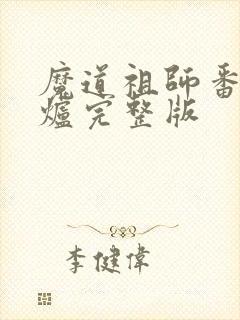 魔道祖師番
爐完整版
李健偉